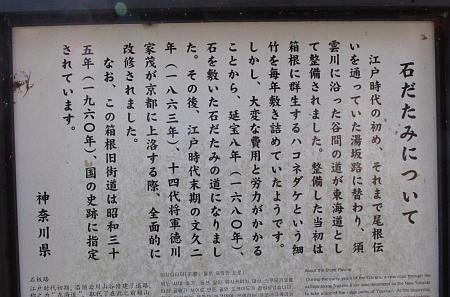 石だたみについて
江戸時代の初め、それまで尾根伝
いを通っていた湯坂路に替わり、須
雲川に沿った谷間の道が東海道とし
て整備されました。整備した当初は
箱根に群生するハコネダケという細
竹を毎年敷き詰めていたようです。
しかし、大変な費用と労力がかかる
ことから、延宝八年(一六八〇年)、
石を敷いた石だたみの道になりまし
た。その後、江戸時代末期の文久二
年(一八六三年)、十四代将軍徳川
家茂が京都に上洛する際、全面的に
改修されました。
なお、この箱根旧街道は昭和三十
五年(一九六〇年)国の史跡に指定
されています。
神奈川県
石板路
About the Stone Paving